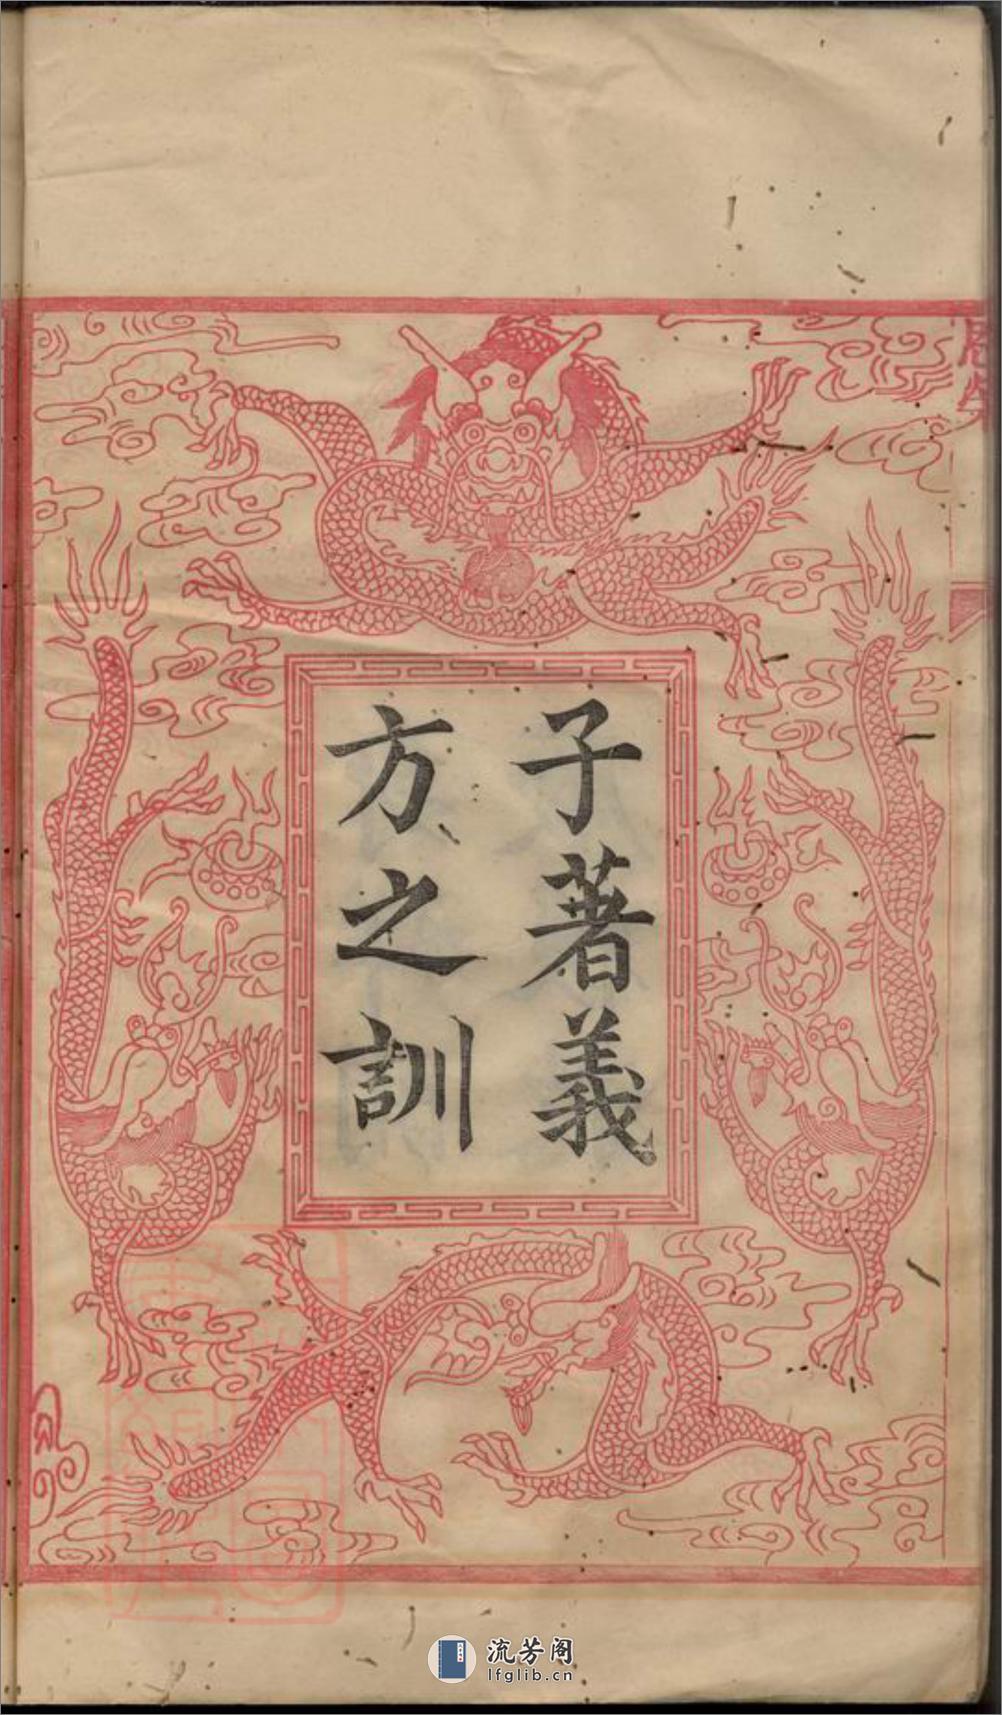 子著義
方之訓
流芳阁
lfglib.cn